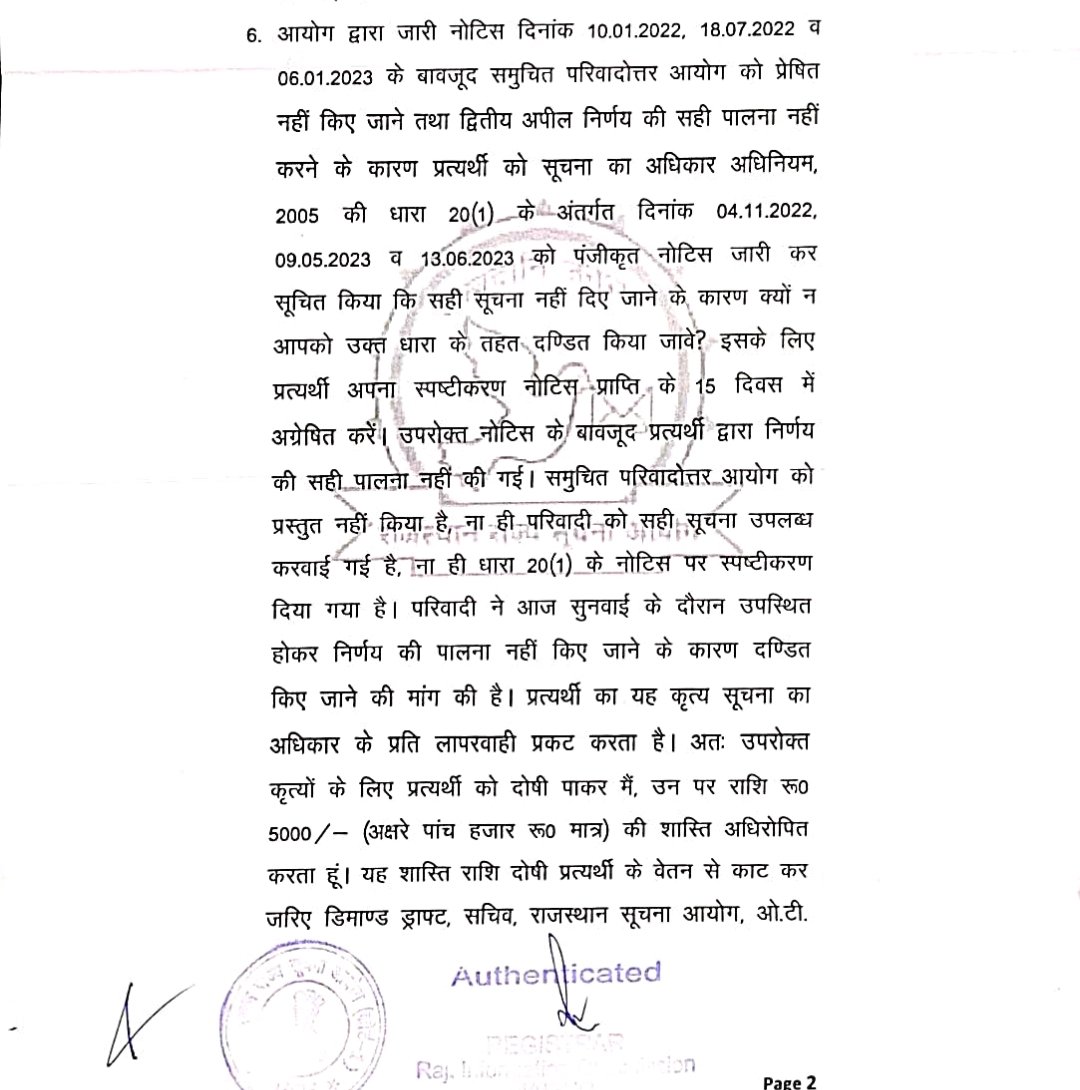 6. आयोग द्वारा जारी नोटिस दिनांक 10.01.2022, 18.07.2022 व
06.01.2023 के बावजूद समुचित परिवादोत्तर आयोग को प्रेषित
नहीं किए जाने तथा द्वितीय अपील निर्णय की सही पालना नहीं
करने के कारण प्रत्यर्थी को सूचना का अधिकार अधिनियम,
2005 की धारा 20(1) के अंतर्गत दिनांक 04.11.2022,
09.05.2023 व 13.06.2023 को पंजीकृत नोटिस जारी कर
सूचित किया कि सही सूचना नहीं दिए जाने के कारण क्यों न
आपको उक्त धारा के तहत दण्डित किया जावे? इसके लिए
प्रत्यर्थी अपना स्पष्टीकरण नोटिस प्राप्ति के 15 दिवस में
अग्रेषित करें। उपरोक्त नोटिस के बावजूद प्रत्यर्थी द्वारा निर्णय
की सही पालना नहीं की गई। समुचित परिवादोत्तर आयोग को
प्रस्तुत नहीं किया है, ना ही परिवादी को सही सूचना उपलब्ध
राजस्थान राज्य सूचना आयोग
करवाई गई है, ना ही धारा 20(1) के नोटिस पर स्पष्टीकरण
दिया गया है। परिवादी ने आज सुनवाई के दौरान उपस्थित
होकर निर्णय की पालना नहीं किए जाने के कारण दण्डित
किए जाने की मांग की है। प्रत्यर्थी का यह कृत्य सूचना का
अधिकार के प्रति लापरवाही प्रकट करता है। अतः उपरोक्त
कृत्यों के लिए प्रत्यर्थी को दोषी पाकर मैं, उन पर राशि रू0
5000/– (अक्षरे पांच हजार रू0 मात्र) की शास्ति अधिरोपित
करता हूं। यह शास्ति राशि दोषी प्रत्यर्थी के वेतन से काट कर
जरिए डिमाण्ड ड्राफ्ट, सचिव, राजस्थान सूचना आयोग, ओ.टी.
Authenticated
REGISTRAR
Raj.
Page 2